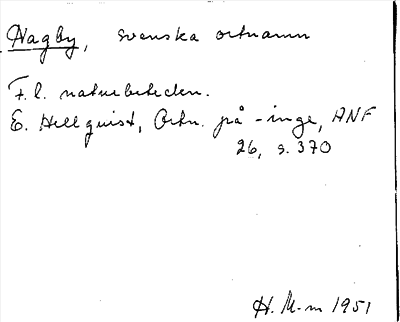 Nagby, svenska ortnamn
F.l. naturbeteckn.
E. Hellquist, Ortn. på -inge, ANF
26, s. 370
H. M-m 1951